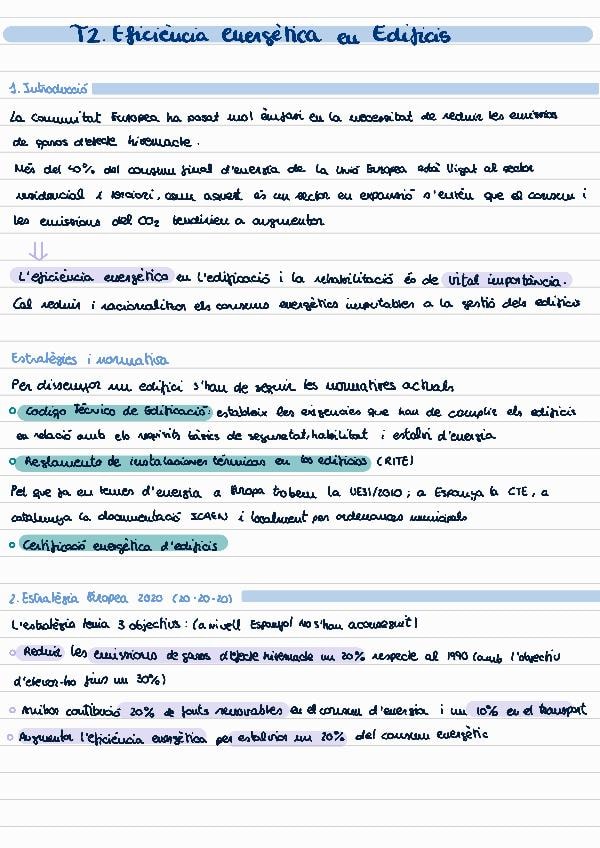 T2. Eficiència energètica en Edificis
1. Introducció
La Comunitat Europea ha posat molt èmfasi en la necessitat de reduir les emissions
de gasos d'efecte hivernacle.
Més del 40% del consum final d'energia de la Unió Europea està lligat al sector
residencial i terciari, com aquest és un sector en expansió s'entén que el consum i
les emissions del CO2 tendeixen a augmentar
L'eficiència energètica en l'edificació i la rehabilitació és de vital importància.
Cal reduir i racionalitzar els consums energètics imputables a la gestió dels edificis
Estratègies i normativa
Per dissenyar un edifici s'han de seguir les normatives actuals
Codigo Técnico de Edificació: estableix les exigencies que han de complir els edificis
en relació amb els requisits bàsics de seguretat, habilitat i estalvi d'energia
Reglamento de instalaciones térmicas en los edificios (RITE)
Pel que fa en temes d'energia a Europa tobem la UE31/2010; a Espanya la CTE, a
catalunya la documentació ICAEN i localment per ordenances municipals
Certificació energètica d'edificis
2. Estratègia Europea 2020 (20-20-20)
L'estratègia tenia 3 objectius: (a nivell Espanyol no s'han aconseguit)
Reduir les emissions de gasos d'efecte hivernacle un 20% respecte al 1990 (amb l'objectiu
d'elevar-ho fins un 30%)
Arribar contribució 20% de fonts renovables en el consum d'energia i un 10% en el transport
Augmentar l'eficiència energètica per estalviar un 20% del consum energètic